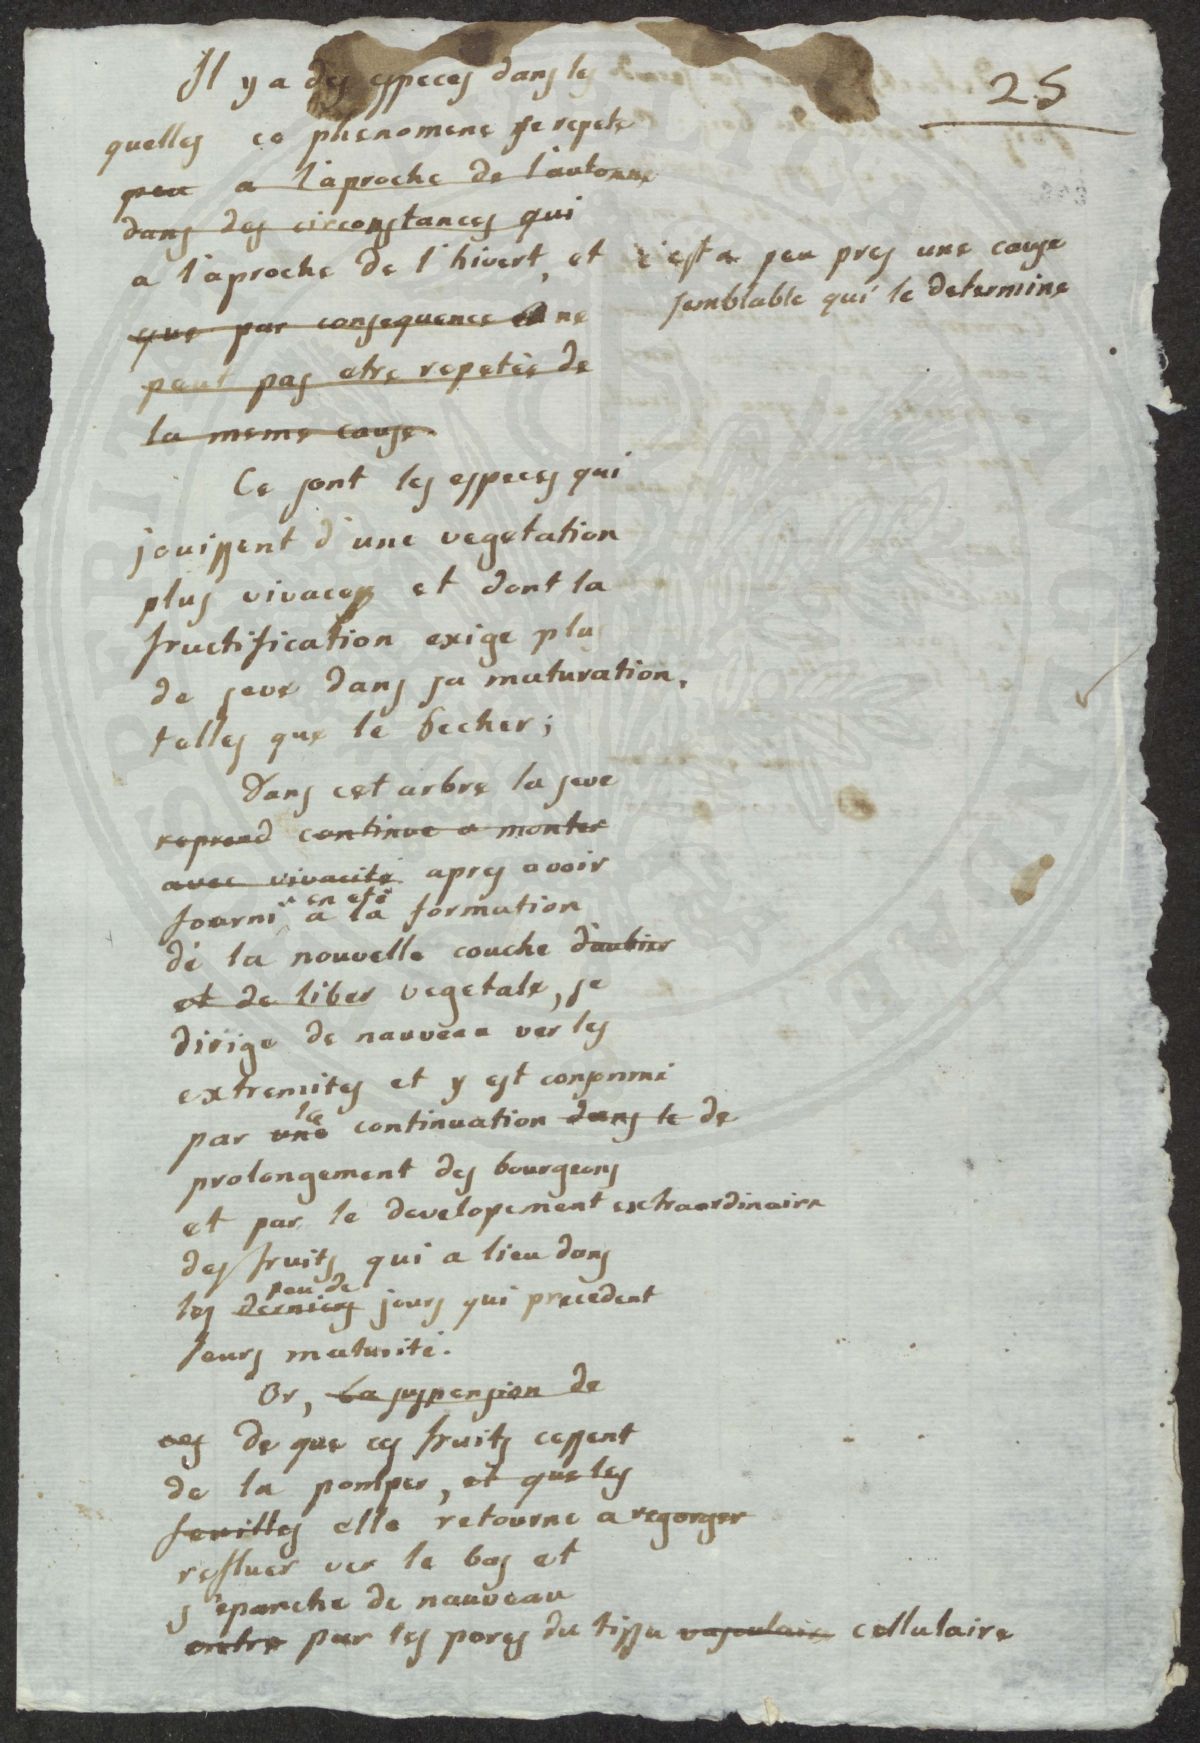 25
Il y a des especes dans les
quelles ce phenomene se repete
peu a l'aproche de l'automne
dans des circonstances qui
a l'aproche de l'hivert, et c'est a peu pres une cause
semblable qui le determine
que par consequence ne
peut pas etre repetée de
la meme cause.
Ce sont les especes qui
jouissent d'une vegetation
plus vivaces et dont la
fructification exige plus
de seve dans sa maturation,
telles que le Pecher;
Dans cet arbre la seve
reprend continue a monter
avec vivacité apres avoir
en eté
fourni a la formation
de la nouvelle couche d'aubier
et de liber vegetale, se
dirige de nauveau ver les
extremites et y est consommé
la
par une continuation dans le de
prolongement des bourgeons
et par le developement extraordinaire
des fruits qui a lieu dans
peu de
les derniers jours qui precedent
leurs maturité.
Or, la suspension de
ces de que ces fruits cessent
de la pomper, et que les
feuilles elle retourne a regorger
refluer ver le bas et
s'eparche de nauveau
entre par les pores du tissu vasculaire cellulaire